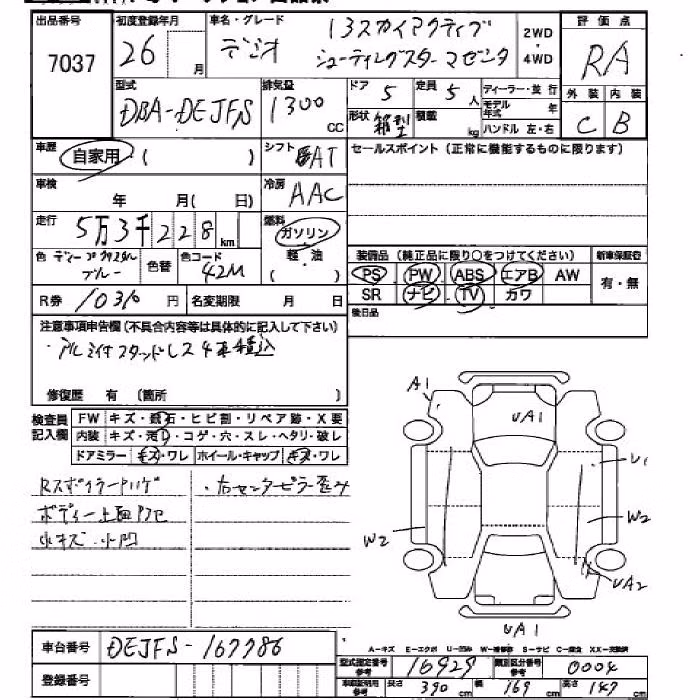 出品番号 初度登録年月 車名・グレード 評価点
7037 26 月 デミオ 13スカイアクティブ 2WD・4WD RA
シューティングスター マゼンタ
型式 排気量 ドア 定員 ディーラー・並行 外装 内装
DBA-DEJFS 1300 CC 5 5人 モデル年式 年
形状 箱型 積載 kg ハンドル 左・右 C B
車歴 自家用 ( ) シフト AT セールスポイント (正常に機能するものに限ります)
車検 年 月( 日) 冷房 AAC
走行 5万3千228km 燃料 ガソリン
軽・油
( ) 装備品 (純正品に限り○をつけてください) 新車保証書
色 ディープクリスタルブルー 色替 色コード 42M PS PW ABS エアB AW 有・無
R券 10310円 名変期限 月 日 SR ナビ TV カワ
後日品
注意事項申告欄(不具合内容等は具体的に記入して下さい)
・アルミ付スタッドレス4本積込
修復歴 有 (箇所 )
検査員記入欄 FW キズ・飛石・ヒビ割・リペア跡・X要
内装 キズ・汚レ・コゲ・穴・スレ・ヘタリ・破レ
ドアミラー キズ・ワレ ホイール・キャップ キズ・ワレ
・右センターピラー歪み
ボディー上面
小キズ・小凹
A1
UA1
U1
W2
W2
UA2
UA1
A-キズ E-エクボ U-凹み W-補修跡 S-サビ C-腐食 XX-交換済
車台番号 DEJFS-167786
型式指定番号 参考 16929 類別区分番号 参考 0004
登録番号 長さ 390cm 幅 169cm 高さ 147cm